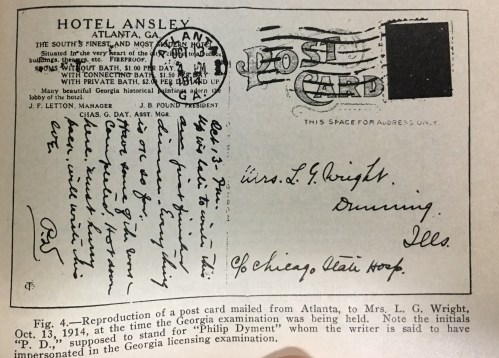 HOTEL ANSLEY
ATLANTA, GA.
THE SOUTH'S FINEST AND MOST MODERN HOTEL
Situated in the very
buildings, theatres, etc. FIREPROOF.
ROOMS WITHOUT BATH, $1.00 PER DAY
WITH CONNECTING BATH, $1.50 PER DAY
WITH PRIVATE BATH, $2.00 PER DAY AND UP
Many beautiful Georgia historical paintings adorn the
lobby of the hotel.
J. F. LETTON, MANAGER J. B. POUND PRESIDENT
CHAS. G. DAY, ASST. MGR.
ATLANTA
OCT
PM
1914
GA.
POST
CARD
THIS SPACE FOR ADDRESS ONLY
Oct-13-Pm.
is late to write - this
first finished
dinner. Everything
is ok so far.
Have some of the work
completed. Hot room
here. Must hurry
back, will write this
eve.
P.D.
Mrs. L. G. Wright.
Dunning.
Ills.
c/o Chicago State Hosp.
Fig. 4.—Reproduction of a post card mailed from Atlanta, to Mrs. L. G. Wright,
Oct. 13, 1914, at the time the Georgia examination was being held. Note the initials
"P. D.," supposed to stand for "Philip Dyment" whom the writer is said to have
impersonated in the Georgia licensing examination.